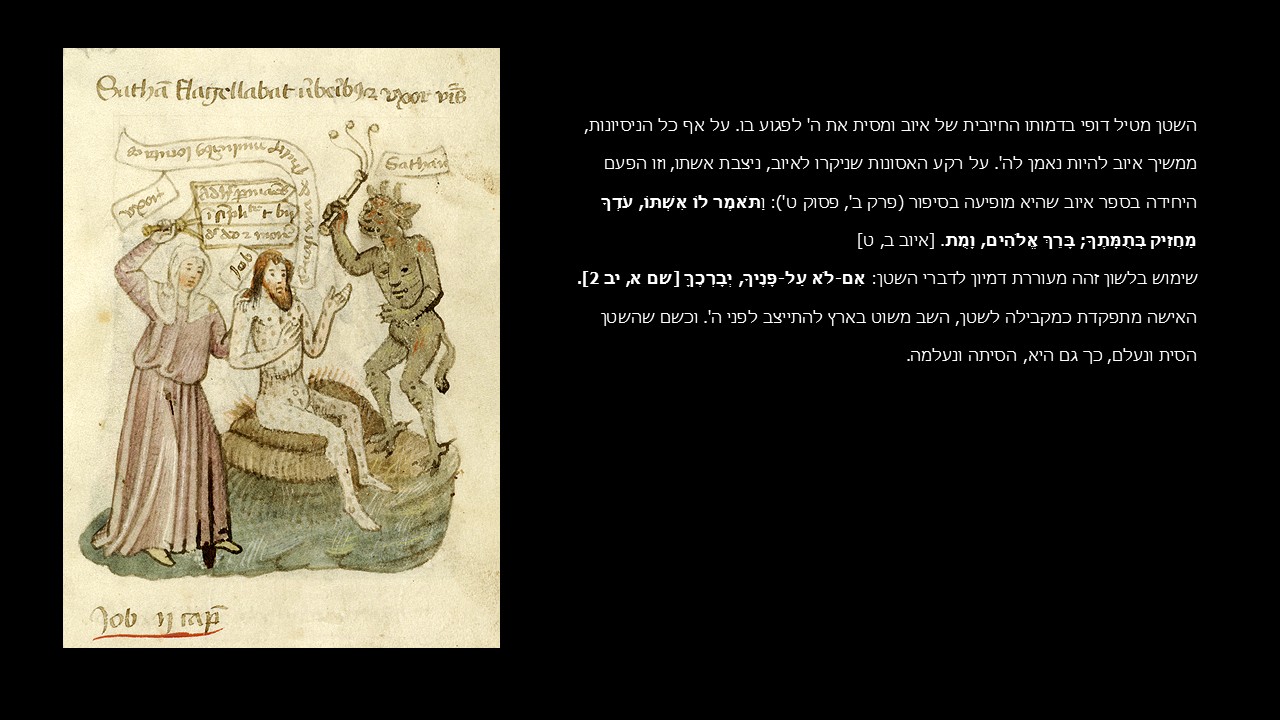 Sathā flagellabat
uxor
Sathan
Job
Job ij cap̄
השטן מטיל דופי בדמותו החיובית של איוב ומסית את ה' לפגוע בו. על אף כל הניסיונות,
ממשיך איוב להיות נאמן לה'. על רקע האסונות שניקרו לאיוב, ניצבת אשתו, וזו הפעם
היחידה בספר איוב שהיא מופיעה בסיפור (פרק ב', פסוק ט'): וַתֹּאמֶר לוֹ אִשְׁתּוֹ, עֹדְךָ
מַחֲזִיק בְּתֻמָּתֶךָ; בָּרֵךְ אֱלֹהִים, וָמֻת. [איוב ב, ט]
שימוש בלשון זהה מעוררת דמיון לדברי השטן: אִם-לֹא עַל-פָּנֶיךָ, יְבָרְכֶךָּ [שם א, יב 2].
האישה מתפקדת כמקבילה לשטן, השב משוט בארץ להתייצב לפני ה'. וכשם שהשטן
הסית ונעלם, כך גם היא, הסיתה ונעלמה.